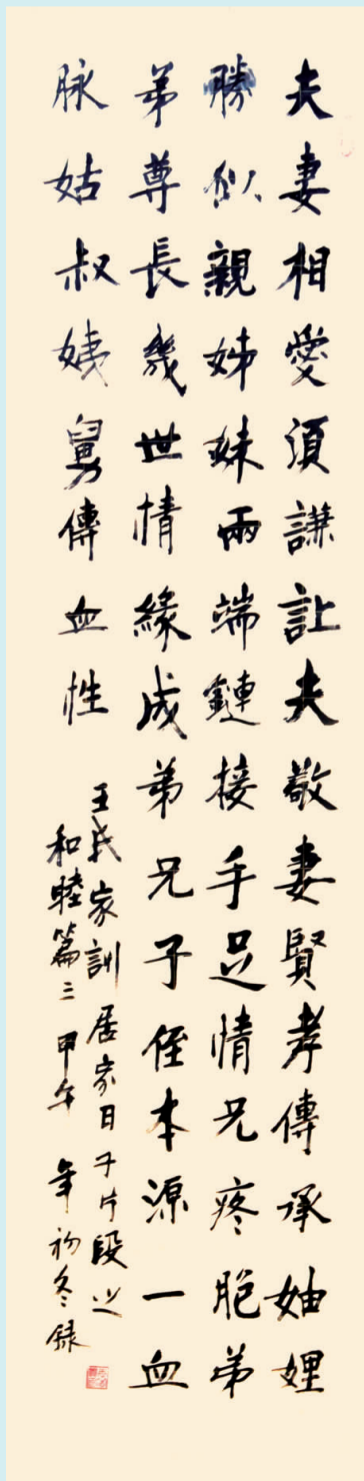 夫妻相愛須謙让夫敬妻賢孝傳承妯娌
勝似親姊妹兩端鏈接手足情兄疼胞弟
弟尊長幾世情緣成弟兄子侄本源一血
脉姑叔姨舅傳血性
王氏家訓 居家日子片段之
和睦篇三 甲午年初冬録